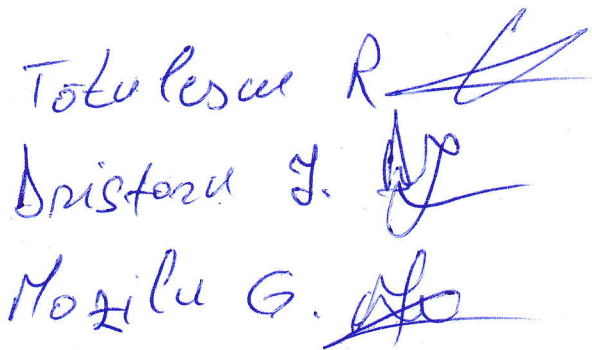 Totulescu R
Dristaru J.
Mozilu G.